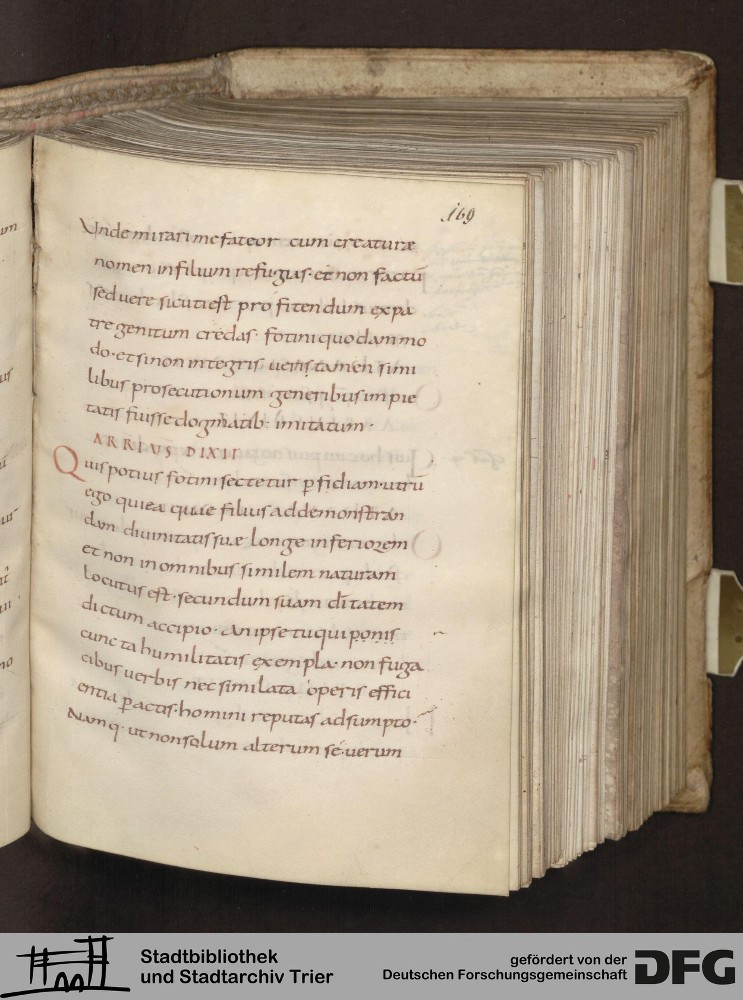 169
Unde mirari me fateor cum creaturæ
nomen in filium refugias· et non factū
sed vere sicuti est profitendum expa
tre genitum credas· fotini quodam mo
do· et si non integris verisftamen simi
libus prosecutionum generibus impie
tatis fuisse dogmatib: imitatum·
ARRIUS DIXIT
Quis potius fotini sectetur p̄fidiam· utrū
ego qui ea quae filius ad demonstran
dam divinitatis suæ longe inferiorem
et non in omnibus similem naturam
locutus est· secundum suam dītatem
dictum accipio· an ipse tu qui ponis
cuncta humilitatis exempla· non fuga
cibus verbis nec similata operis effici
entia p̄actis· homini reputas adsumpto·
Namq· ut non solum alterum se· verum
Stadtbibliothek
und Stadtarchiv Trier
gefördert von der
Deutschen Forschungsgemeinschaft
DFG